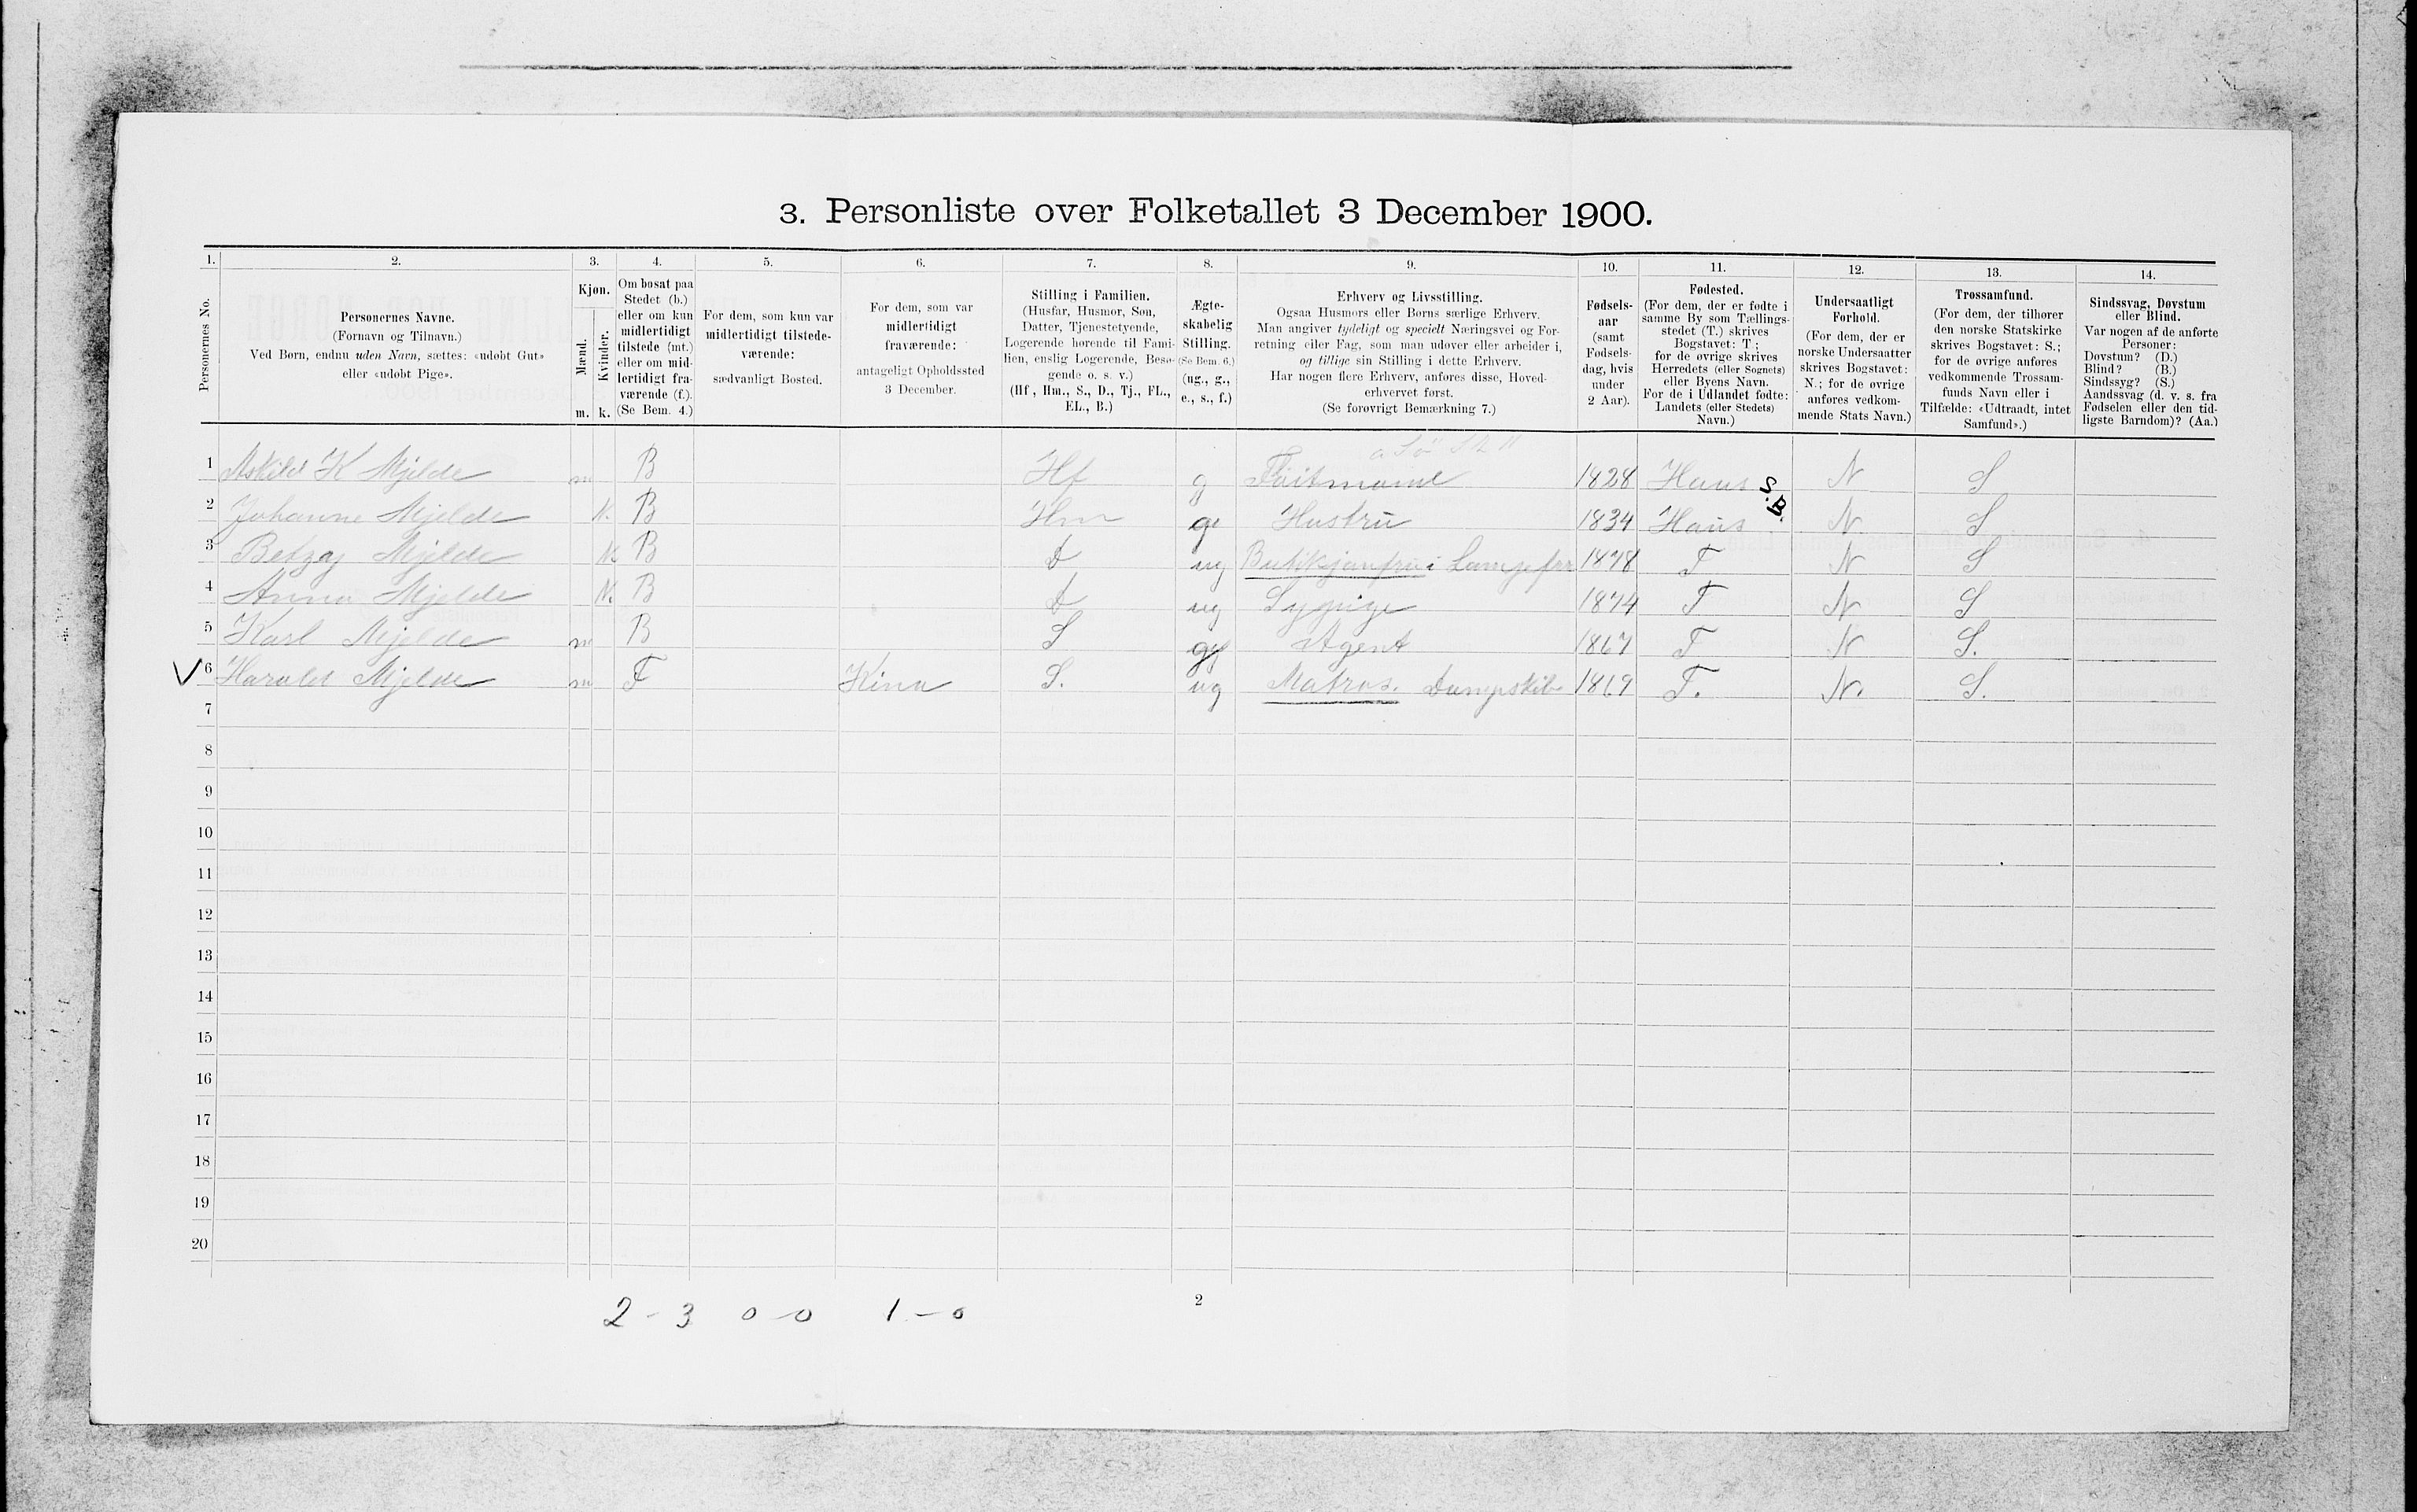 3. Personliste over Folketallet 3 December 1900.
1. 2. 3. 4. 5. 6. 7. 8. 9. 10. 11. 12. 13. 14.
Personernes No.
Personernes Navne.
(Fornavn og Tilnavn.)
Ved Børn, endnu uden Navn, sættes: «udøbt Gut»
eller «udøbt Pige».
Kjøn.
Mænd.
Kvinder.
m. k.
Om bosat paa
Stedet (b.)
eller om kun
midlertidigt
tilstede (mt.)
eller om mid-
lertidigt fra-
værende (f.).
(Se Bem. 4.)
For dem, som kun var
midlertidigt tilstede-
værende:
sædvanligt Bosted.
For dem, som var
midlertidigt
fraværende:
antageligt Opholdssted
3 December.
Stilling i Familien.
(Husfar, Husmor, Søn,
Datter, Tjenestetyende,
Logerende hørende til Fami-
lien, enslig Logerende, Besø-
gende o. s. v.)
(Hf, Hm., S., D., Tj., FL.,
EL., B.)
Ægte-
skabelig
Stilling.
(Se Bem. 6.)
(ug., g.,
e., s., f.)
Erhverv og Livsstilling.
Ogsaa Husmors eller Børns særlige Erhverv.
Man angiver tydeligt og specielt Næringsvei og For-
retning eller Fag, som man udøver eller arbeider i,
og tillige sin Stilling i dette Erhverv.
Har nogen flere Erhverv, anføres disse, Hoved-
erhvervet først.
(Se forøvrigt Bemærkning 7.)
Fødsels-
aar
(samt
Fødsels-
dag, hvis
under
2 Aar).
Fødested.
(For dem, der er fødte i
samme By som Tællings-
stedet (T.) skrives
Bogstavet: T;
for de øvrige skrives
Herredets (eller Sognets)
eller Byens Navn.
For de i Udlandet fødte:
Landets (eller Stedets)
Navn.)
Undersaatligt
Forhold.
(For dem, der er
norske Undersaatter
skrives Bogstavet:
N.; for de øvrige
anføres vedkom-
mende Stats Navn.)
Trossamfund.
(For dem, der tilhører
den norske Statskirke
skrives Bogstavet: S.;
for de øvrige anføres
vedkommende Trossam-
funds Navn eller i
Tilfælde: «Udtraadt, intet
Samfund».)
Sindssvag, Døvstum
eller Blind.
Var nogen af de anførte
Personer:
Døvstum? (D.)
Blind? (B.)
Sindssyg? (S.)
Aandssvag (d. v. s. fra
Fødselen eller den tid-
ligste Barndom)? (Aa.)
1 Askild K Mjelde m B Hf g Føitmand 1828 Haus N S
2 Johanne Mjelde K. B Hm g Hustru 1834 Haus S.B. N S
3 Betzy Mjelde K B D ug Butikjomfru i 1878 T N S
4 Anna Mjelde K. B D ug Sypige 1874 T N S
5 Karl Mjelde m B S Agent 1867 T N S.
V 6 Harald Mjelde m F Kina S. ug Matros. Dampskib 1869 T. N. S.
7
8
9
10
11
12
13
14
15
16
17
18
19
20
2 - 3 0 - 0 1 - 0
2